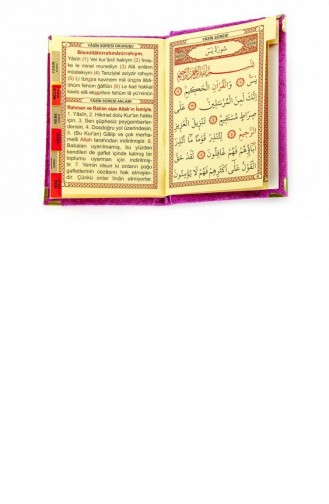 YÂSİN SÛRESİ OKUNUŞU
Bismillâhirrahmânirrahîym.
Yâsîn. (1) Vel kur'ânil hakiym (2) İnne-
ke le minel murseliyn (3) Alâ sırâtım
müstekıym (4) Tenziylel aziyzir rahıym
(5) Li tünzira kavmem mâ ünzira âbâ-
ühüm fehüm ğâfilûn (6) Le kad hakkal
kavlü alâ ekserihim fehüm lâ yü'minûn
YÂSİN SÛRESİ ANLAMI
Rahman ve Rahim olan Allah'ın İsmiyle.
1. Yâsîn, 2. Hikmet dolu Kur'ân hakkı
için, 3. Sen şüphesiz peygamberler-
densin. 4. Dosdoğru yol üzerindesin.
5. (Bu Kur'an) Üstün ve çok merha-
metli Allah tarafından indirilmiştir. 6.
Babaları uyarılmamış, bu yüzden
kendileri de gaflet içinde kalmış bir
toplumu uyarman için indirilmiş-
tir. 7. Yemin olsun ki onların çoğu
gafletlerinin cezasını hak etmişler-
dir. Çünkü onlar îman etmiyorlar.
YÂSİN SÛRESİ
سُورَةُ يٰسٓ
بِسْمِ اللّٰهِ الرَّحْمٰنِ الرَّحِيمِ
يٰسٓ ۝ وَالْقُرْاٰنِ الْحَكِيمِ ۝
اِنَّكَ لَمِنَ الْمُرْسَلِينَ ۝ عَلٰى
صِرَاطٍ مُسْتَقِيمٍ ۝ تَنْزِيلَ الْعَزِيزِ
الرَّحِيمِ ۝ لِتُنْذِرَ قَوْمًا مَا اُنْذِرَ
اٰبَاؤُهُمْ فَهُمْ غَافِلُونَ ۝ لَقَدْ حَقَّ
الْقَوْلُ عَلٰى اَكْثَرِهِمْ فَهُمْ لَا يُؤْمِنُونَ